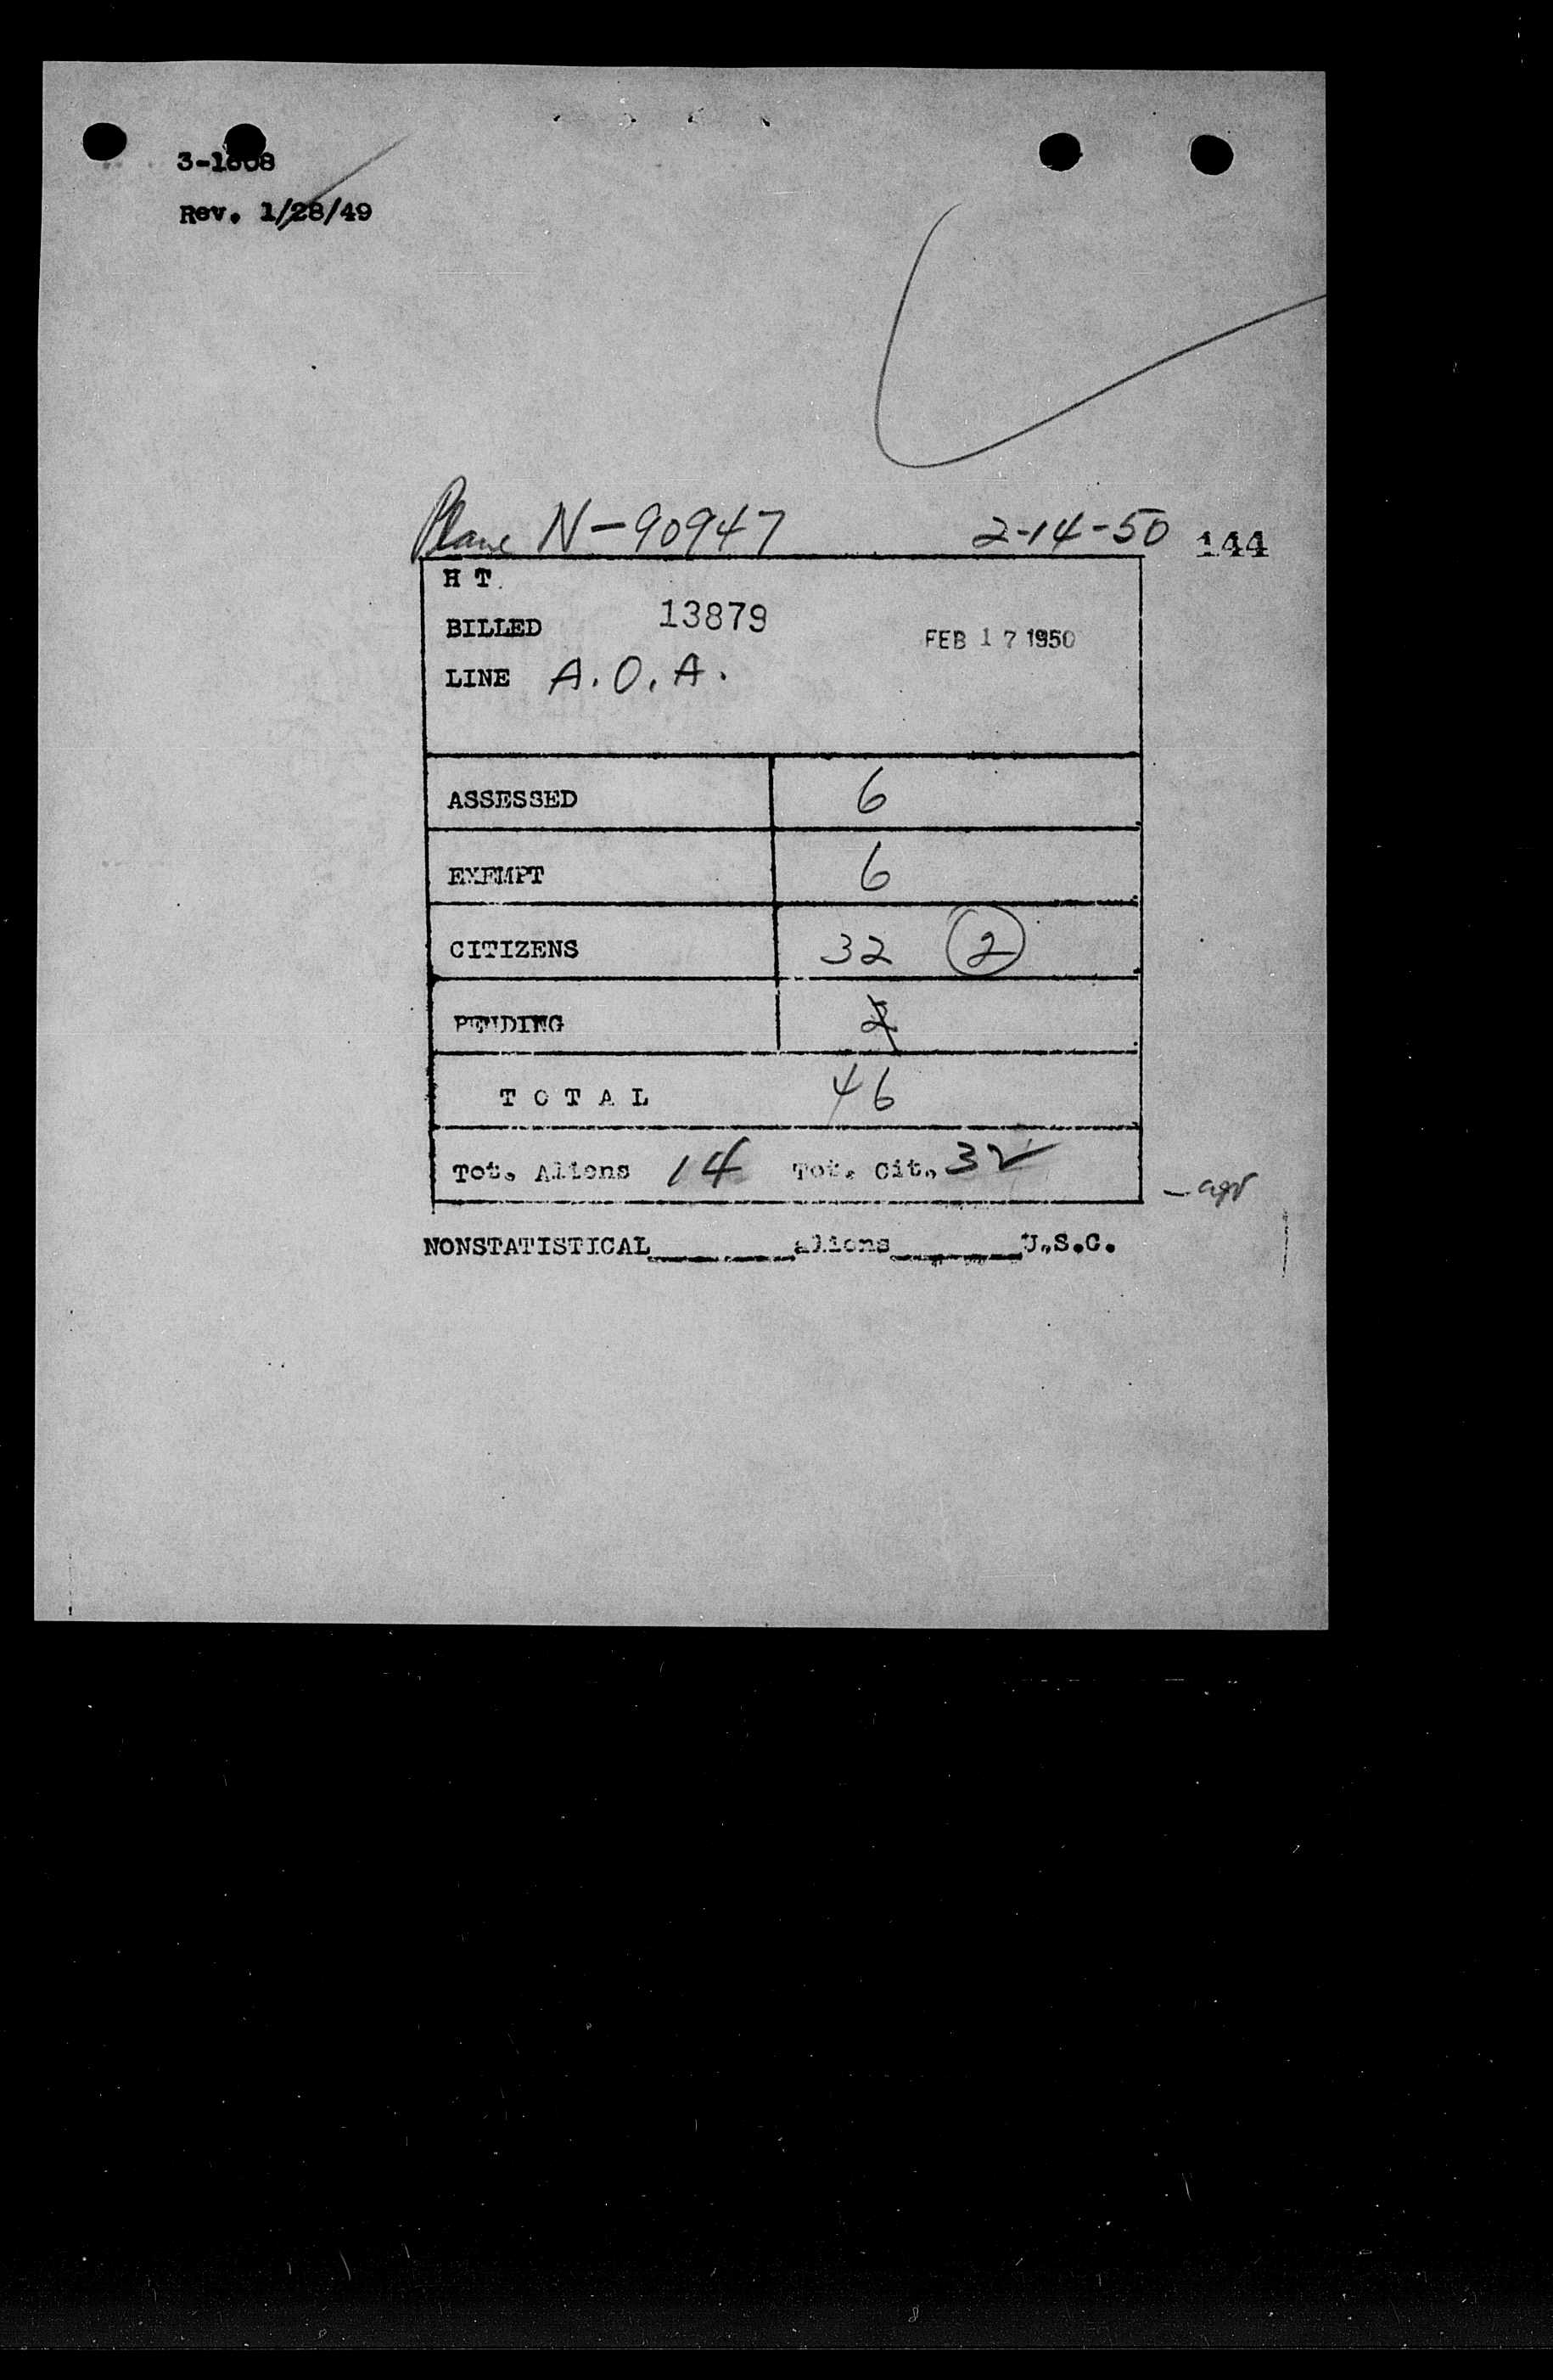 Rev. 1/28/49
Plane N-90947 2-14-50 144
H T
BILLED 13879 FEB 17 1950
LINE A.O.A.
ASSESSED 6
EXEMPT 6
CITIZENS 32 2
PENDING 2
TOTAL 46
Tot. Aliens 14 Tot. Cit. 32
NONSTATISTICAL________aliens________U.S.C.